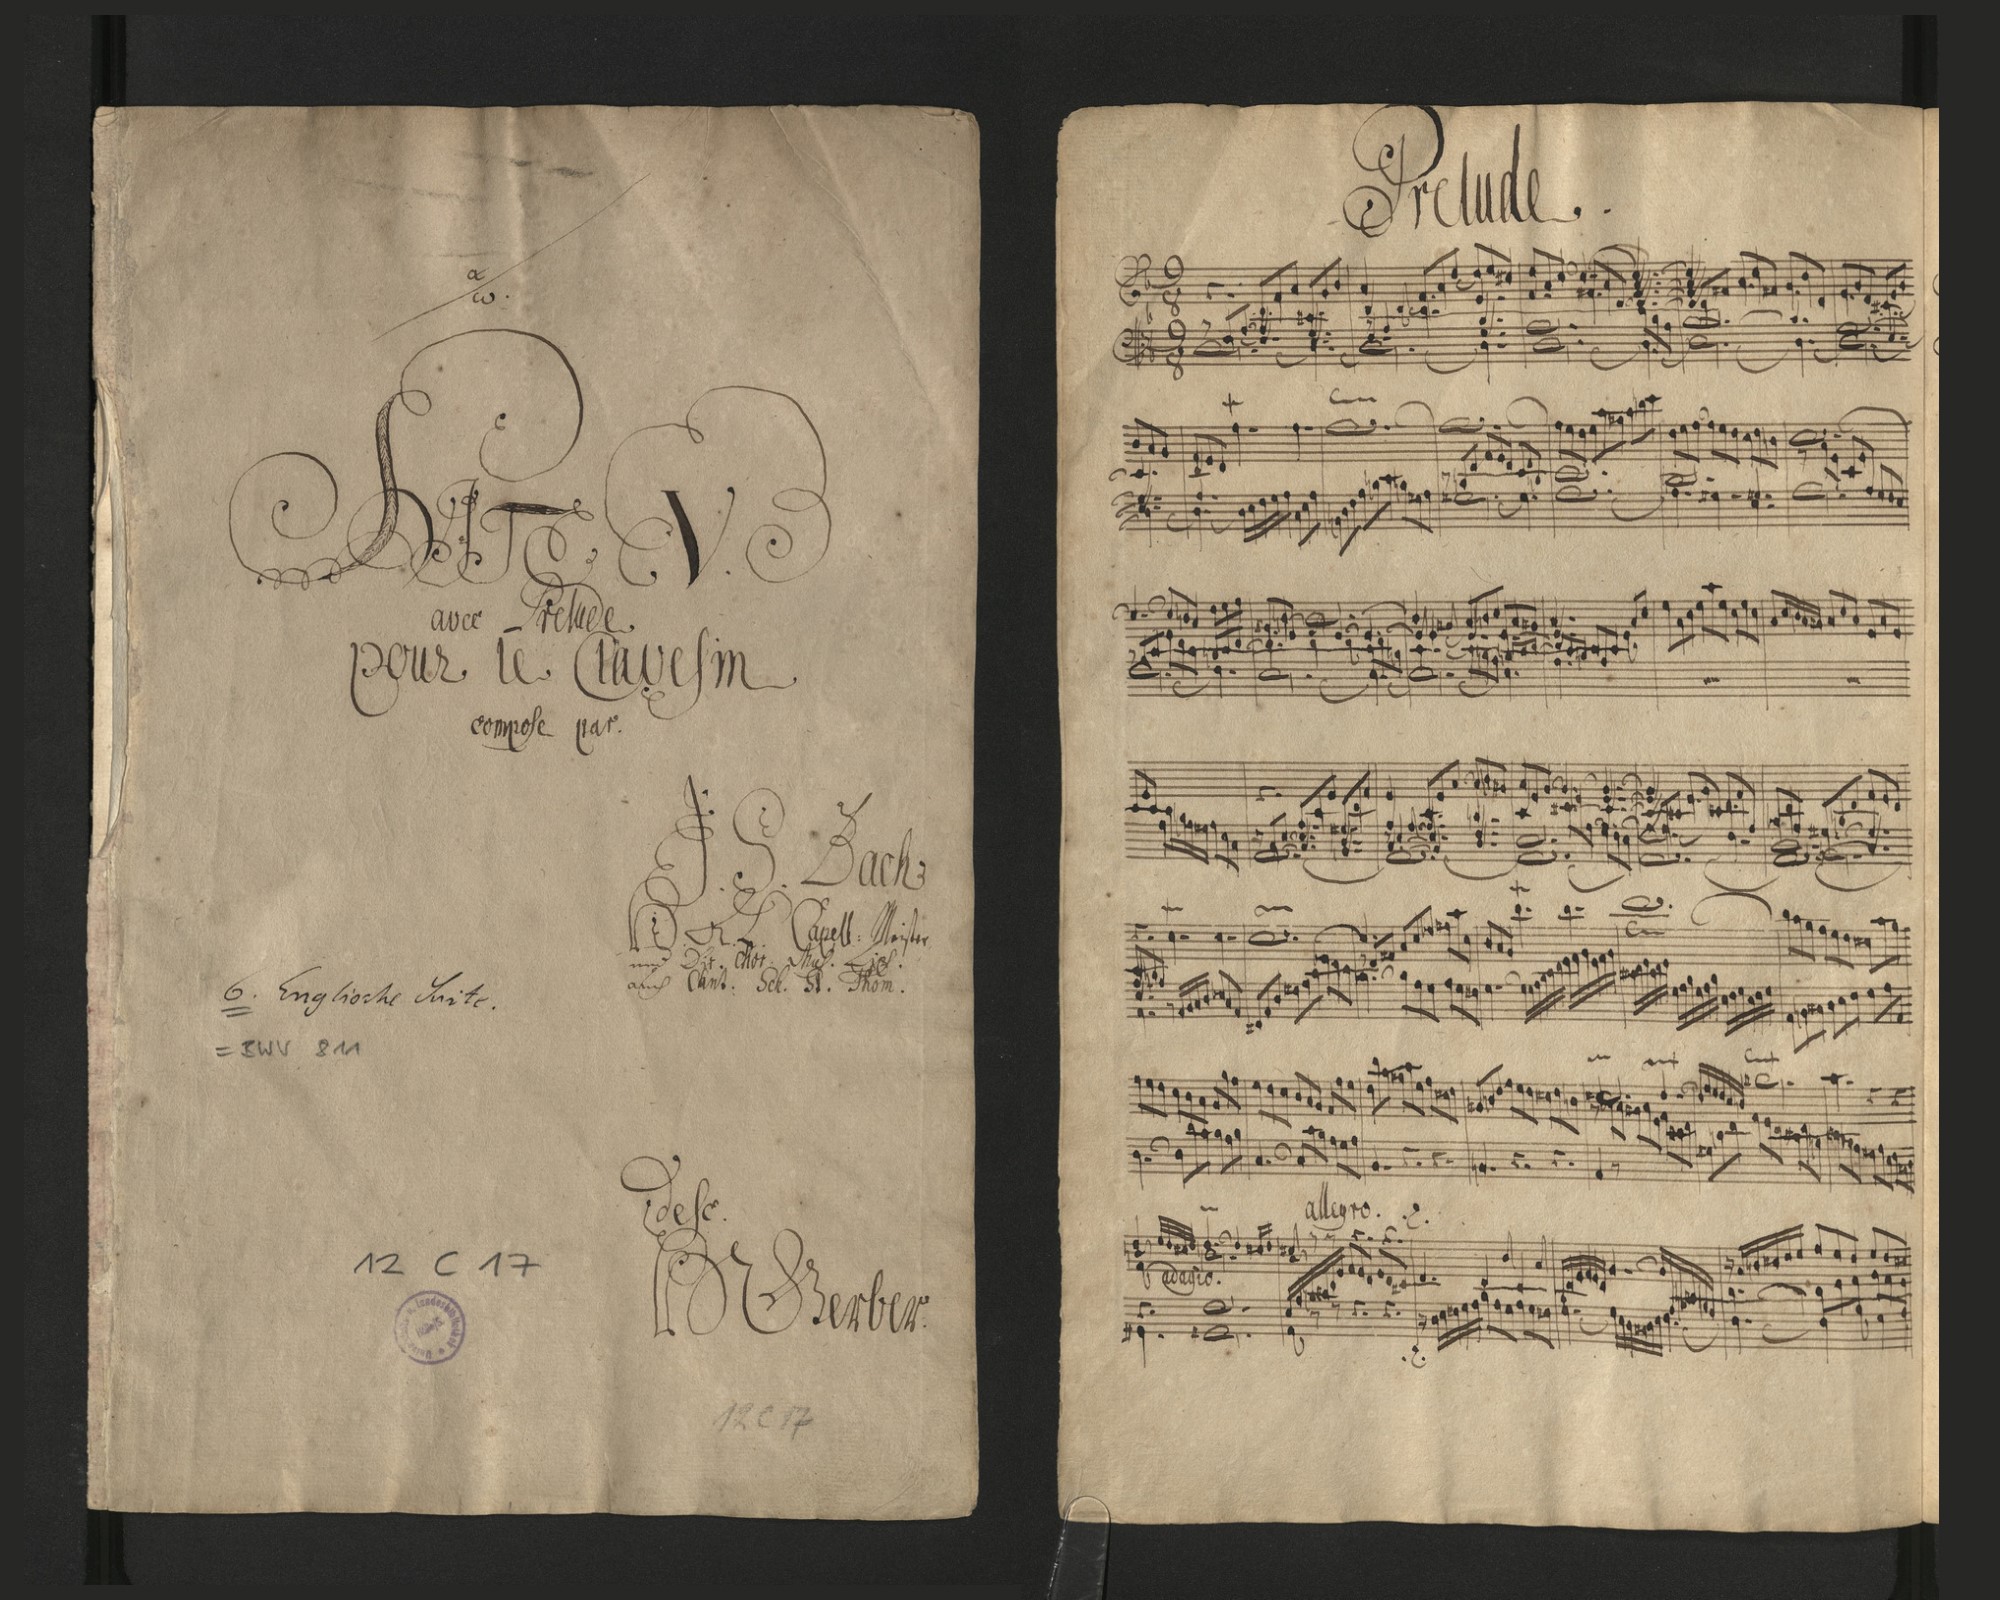 α
ω.
SUITE V.
avec Prelude
pour le Clavesin
compose par.
J. S. Bach
H. A. C. Capell: Meister
und Dir. Chor. Mus. Lips.
auch Cant: Sch. St. Thom.
6. Englische Suite.
= BWV 811
desc.
HN Gerber.
12 C 17
12 C 17
Prelude.
9
8
9
8
allegro.
adagio.